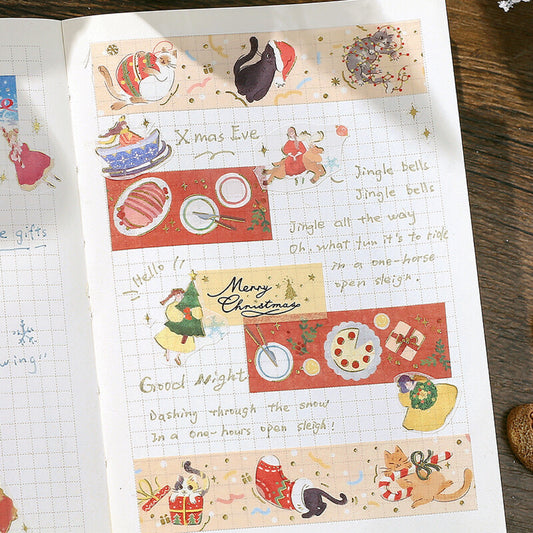 e gifts
wing"
Xmas Eve
Jingle bells
Jingle bells
Jingle all the way
Oh, what fun it's to ride
in a one-horse
open sleigh.
Hello!!
Merry
Christmas
Good Night
Dashing through the snow
In a one-hours open sleigh!